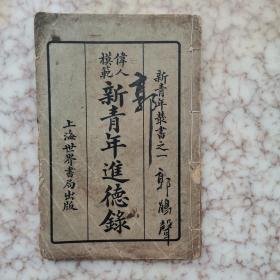 新青年叢書之一
郭鵬聲
郭
偉人
模範
新青年進德錄
上海世界書局出版